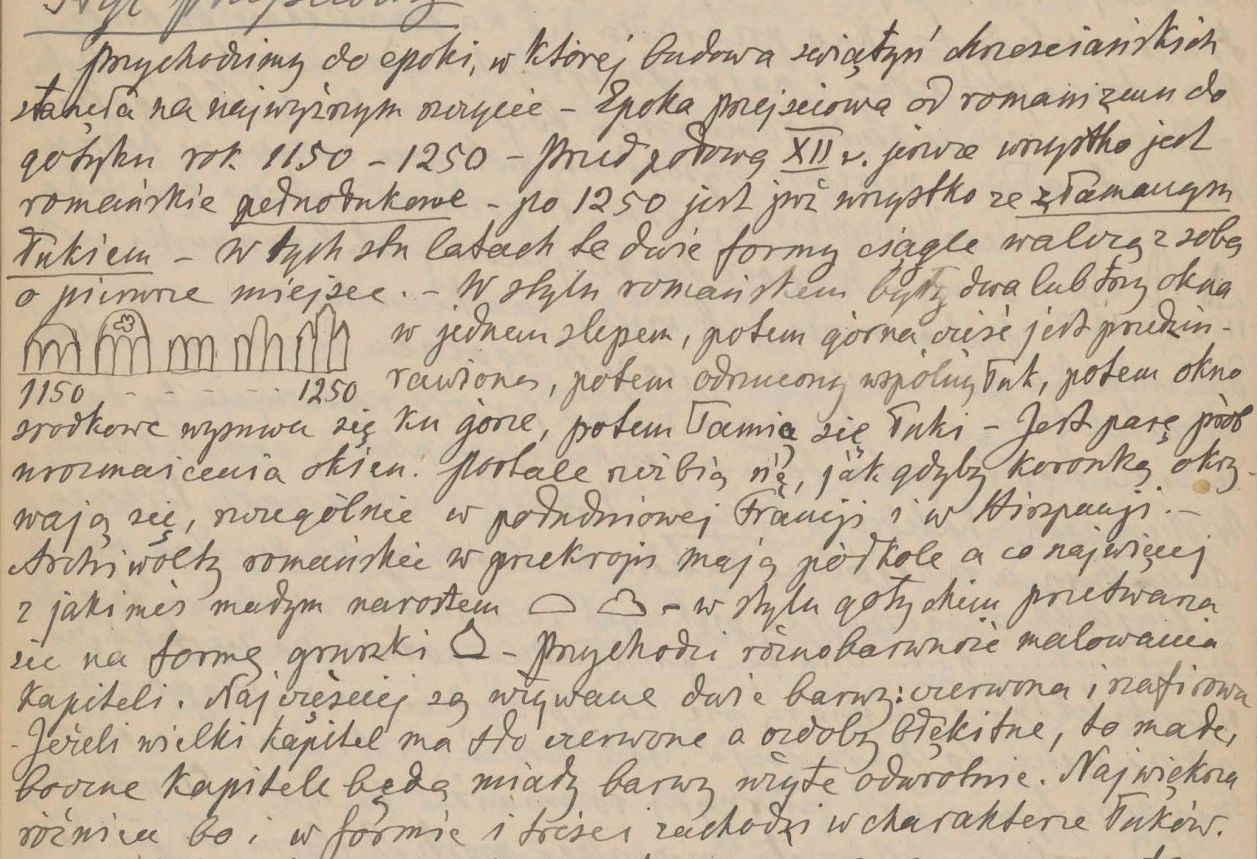 Styl przejściowy
Przychodzimy do epoki, w której budowa świątyń chrześciańskich
stanęła na najwyższym szczycie – Epoka przejściowa od romanizmu do
gotyku rok 1150 – 1250 – Przed połową XII w. jeszcze wszystko jest
romańskie pełnołukowe – po 1250 jest już wszystko ze złamanym
łukiem – W tych stu latach te dwie formy ciągle walczą z sobą
o pierwsze miejsce. – W stylu romańskiem były dwa lub trzy okna
w jednem ślepem, potem górna cześć jest przedziu-
rawiona, potem odrzucony wspólny łuk, potem okno
1150 - - - 1250
srodkowe wysuwa się ku górze, potem łamią się łuki – Jest parę prób
urozmaicenia okien. Portale rzeźbią się, jak gdyby koronką okry-
wają się, szczególnie w południowej Francji i w Hiszpanji. –
Archiwolty romańskie w przekroju mają półkole a co najwięcej
z jakimés małym narostem – w stylu gotychiem przetwarza
się na formę gruszki – Przychodzi różnobarwność malowania
kapiteli. Najcięściej są używane dwie barwy: czerwona i szafirowa
- Jeżeli wielki kapitel ma tło czerwone a ozdoby błękitne, to małe,
boczne kapitele będą miały barwy użyte odwrotnie. Największa
różnica bo i w formie i treści zachodzi w charakterze łuków.